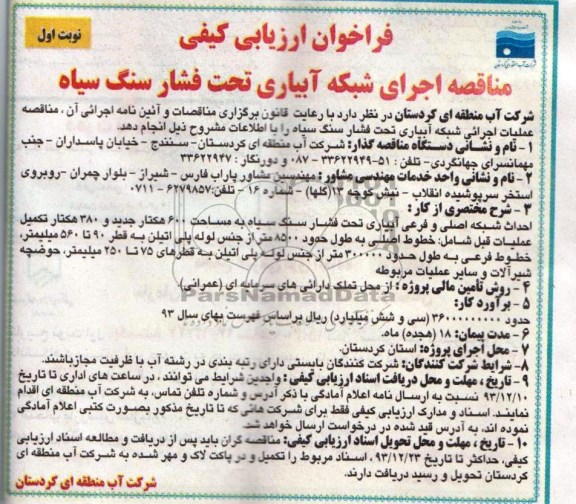 نوبت اول
فراخوان ارزیابی کیفی
مناقصه اجرای شبکه آبیاری تحت فشار سنگ سیاه
شرکت آب منطقه ای کردستان در نظر دارد با رعایت قانون برگزاری مناقصات و آئین نامه اجرائی آن، مناقصه
عملیات اجرائی شبکه آبیاری تحت فشار سنگ سیاه را با اطلاعات مشروح ذیل انجام دهد.
۱ - نام و نشانی دستگاه مناقصه گذار: شرکت آب منطقه ای کردستان- سنندج - خیابان پاسداران - جنب
مهمانسرای جهانگردی- تلفن : ۵۱-۳۳۶۲۲۹۴۹ - ۰۸۷ و دورنگار : ۳۳۶۲۲۹۴۷
۲ - نام و نشانی واحد خدمات مهندسی مشاور : مهندسین مشاور پاراب فارس - شیراز - بلوار چمران -روبروی
استخر سرپوشیده انقلاب - نبش کوچه ۱۳(کلها) - شماره ۱۶ - تلفن:۶۲۷۹۸۵۷ - ۰۷۱۱
۳ - شرح مختصری از کار :
احداث شبکه اصلی و فرعی آبیاری تحت فشار سنگ سیاه به مساحت ۶۰۰ هکتار جدید و ۳۸۰ هکتار تکمیل
عملیات قبل شامل: خطوط اصلی به طول حدود ۸۵۰۰ متر از جنس لوله پلی اتیلن به قطر ۹۰ تا ۵۶۰ میلیمتر،
خطوط فرعی به طول حدود ۳۰۰۰۰۰ متر از جنس لوله پلی اتیلن به قطرهای ۷۵ تا ۲۵۰ میلیمتر، حوضچه
شیرآلات و سایر عملیات مربوطه
۴ - روش تأمین مالی پروژه : از محل تملک دارائی های سرمایه ای (عمرانی)
ParsNamadData
۵ - برآورد کار:
حدود ۳۶۰۰۰۰۰۰۰۰۰ (سی و شش میلیارد) ریال براساس فهرست بهای سال ۹۳
۶ - مدت پیمان: ۱۸ (هجده) ماه.
۷ - محل اجرای پروژه: استان کردستان.
۸ - شرایط شرکت کنندگان: شرکت کنندگان بایستی دارای رتبه بندی در رشته آب با ظرفیت مجاز باشند.
۹ - تاریخ ، مهلت و محل دریافت اسناد ارزیابی کیفی : واجدین شرایط می توانند ، در ساعت های اداری تا تاریخ
۹۳/۱۲/۱۰ نسبت به ارسال نامه اعلام آمادگی با ذکر آدرس و شماره تلفن تماس، به شرکت آب منطقه ای اقدام
نمایند. اسناد و مدارک ارزیابی کیفی فقط برای شرکت هائی که تا تاریخ مذکور بصورت کتبی اعلام آمادگی
نموده اند، به آدرس قید شده در درخواست ارسال خواهد شد.
۱۰- تاریخ ، مهلت و محل تحویل اسناد ارزیابی کیفی: مناقصه گران باید پس از دریافت و مطالعه اسناد ارزیابی
کیفی، حداکثر تا تاریخ ۹۳/۱۲/۲۳، اسناد مربوط را تکمیل و در پاکت لاک و مهر شده به شرکت آب منطقه ای
کردستان تحویل و رسید دریافت دارند.
شرکت آب منطقه ای کردستان